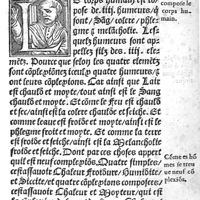 E corps humain est cõ
pose de .iiij. humeurs/ q̃
font/ Sãg/ colere/ phle
gme & melãcholie. Les-
quelz humeurs sont ap
pellez filz des .iiij. ele-
mẽtz. Pource que selon les quatre elemẽtz
sont cõplexiõnez iceulx quatre humeurs/ &
ont leurs cõplexiõs. Car ainsi que Lair
est chauld & moyte/ tout ainsi est le Sang
chauld & moyte. Et cõme le Feu est chauld
et sec/ ainsi est la colere chaulde & seiche. Et
comme leaue est froide et moyte/ ainsi est le
phlegme froit et moyte. Et comme la terre
est froide et seiche/ ainsi est la Melancholie
froide et seiche. Dont par ces choses appert
quil est neuf complexiõs. Quatre simples/
estassauoir Chaleur Froidure/ Humidite/
et Siccite/ et quatre cõplexions composees/
estassauoir Chaleur et Moyteur/ qui est
compose le
corps hu
main.
Cõme es hõ
mes se treu
ue neuf cõ
plexiõs.